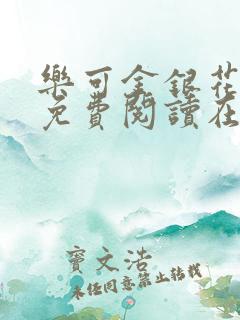 樂可金銀花
免費閱讀在
寶文浩
未任同意禁止转载